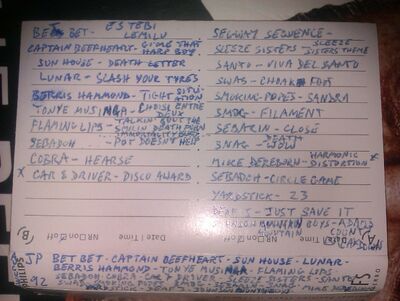 BET BET - ESTEBI
LEMILU
CAPTAIN BEEFHEART - GIMME THAT
HARP BOY
SUN HOUSE - DEATH LETTER
LUNAR - SLASH YOUR TYRES
BERRIS HAMMOND - TIGHT SITU-
ATION
TONYE MUSINGA - CHOISE ENTRE
DEUX
FLAMING LIPS - TALKIN' BOUT THE
SMILIN DEATH PORN
IMMORTALITY BLUES
SEBADOH - POT DOESN'T HELP
COBRA - HEARSE
X CAR & DRIVER - DISCO AWARD
SEGWAY SEQUENCE -
SLEEZE SISTERS - SLEEZE
SISTERS THEME
SANTO - VIVA DEL SANTO
SWAS - CHOAK FOOT
SMOKING POPES - SANDRA
SMOG - FILAMENT
SEBAKIN - CLOSE
3NAG - DEATH
WISH
MIKE DEREBORN - HARMONIC
DISTORTION X
SEBADOH - CIRCLE GAME
YARDSTICK - 23
- JUST SAVE IT
MOUNTAIN BOYS -
COUNTY
B) NR On Off Date / Time
A) NR On Off Date / Time
JP BET BET - CAPTAIN BEEFHEART - SUN HOUSE - LUNAR -
BERRIS HAMMOND - TONYE MUSINGA - FLAMING LIPS
92 SEBADOH COBRA CAR & DRIVER SLEEZE SISTERS - SANTO -